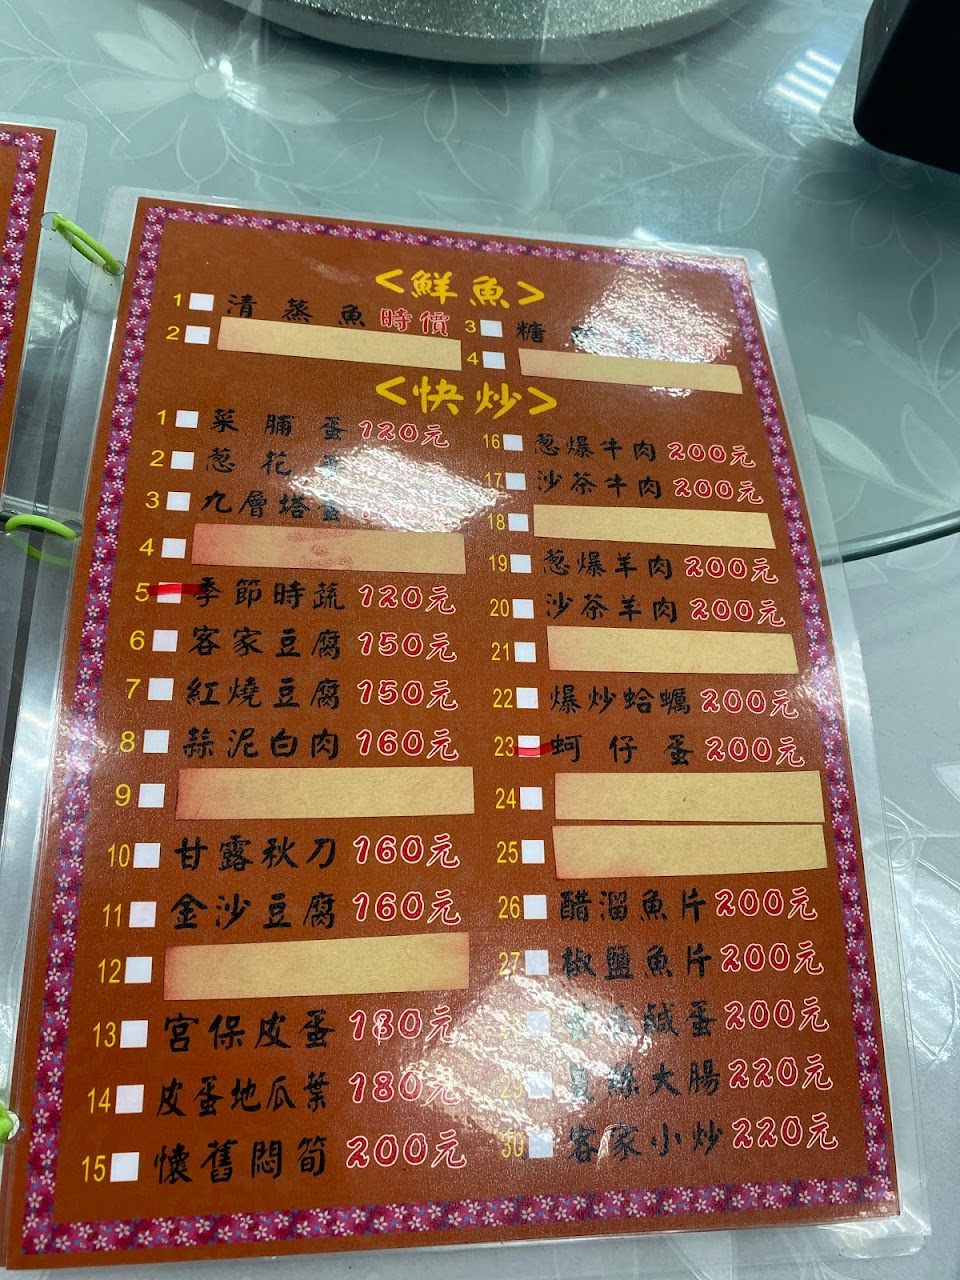 <鮮魚>
1 清蒸魚 時價
2
3 糖
4
<快炒>
1 菜脯蛋 120元
2 蔥花
3 九層塔蛋
4
5 季節時蔬 120元
6 客家豆腐 150元
7 紅燒豆腐 150元
8 蒜泥白肉 160元
9
10 甘露秋刀 160元
11 金沙豆腐 160元
12
13 宮保皮蛋 180元
14 皮蛋地瓜葉 180元
15 懷舊悶筍 200元
16 蔥爆牛肉 200元
17 沙茶牛肉 200元
18
19 蔥爆羊肉 200元
20 沙茶羊肉 200元
21
22 爆炒蛤蠣 200元
23 蚵仔蛋 200元
24
25
26 醋溜魚片 200元
27 椒鹽魚片 200元
鹹蛋 200元
大腸 220元
30 客家小炒 220元